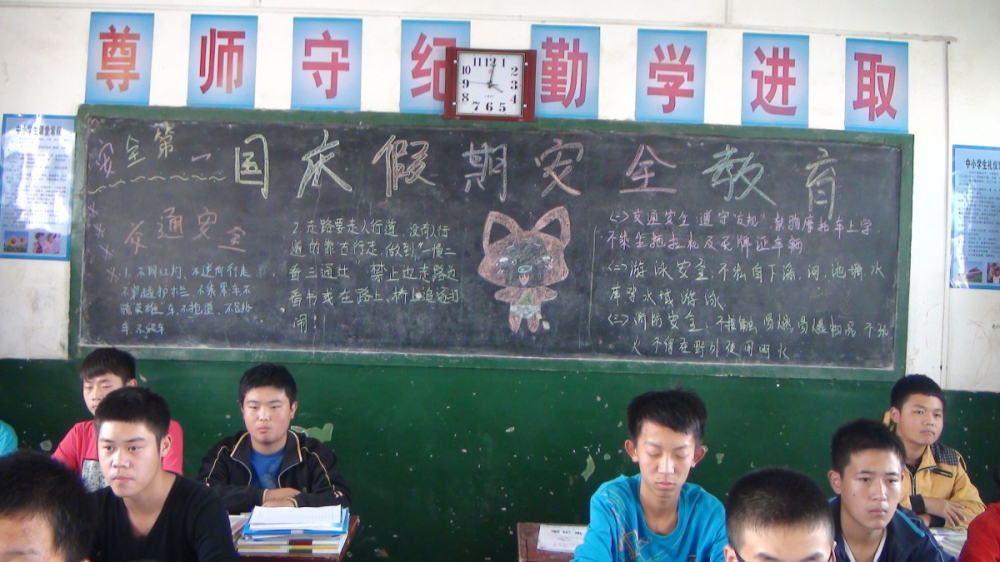 尊师守纪勤学进取
11 12 1
10 2
9 3
8 4
7 6 5
中小学生课堂常规
安全第一
国庆假期安全教育
交通安全
1. 不闯红灯、不逆有行走
不穿越护栏、不乘黑车不
车、不飙车
2. 走路要走人行道、没有人行
道的靠右行走、做到"一慢二
看三通过"，禁止边走路边
看书或在路上、桥上追逐打
闹！
(一) 交通安全 遵守法规 禁骑摩托车上学
不乘坐拖拉机及无牌证车辆
(二) 游泳安全 不私自下海、河、池塘水
库等水域游泳
(三) 消防安全、不接触易燃易爆物品 不玩
火 不得在野外使用明火
中小学生礼仪